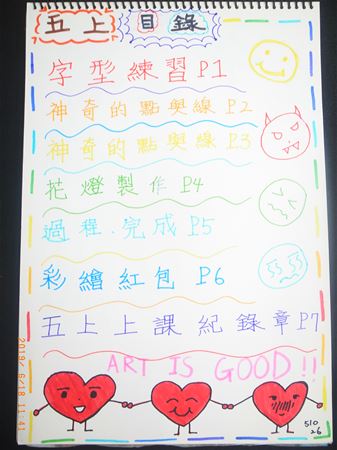 五上 目錄
字型練習P1
神奇的點與線 P2
神奇的點與線 P3
花燈製作 P4
過程.完成P5
彩繪紅包 P6
五上上課紀錄章P7
ART IS GOOD!!
510
26
2019/6/18 11:41